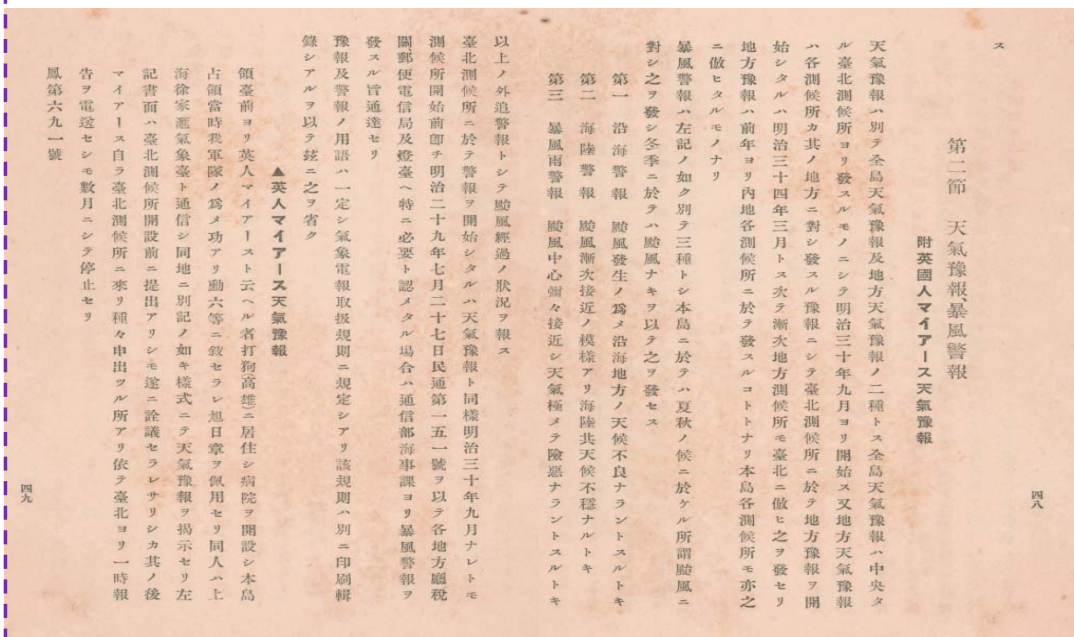 ス
第二節　天氣豫報、暴風警報
附英國人マイアース天氣豫報
天氣豫報ハ別テ全島天氣豫報及地方天氣豫報ノ二種トス全島天氣豫報ハ中央タ
ル臺北測候所ヨリ發スルモノニシテ明治三十年九月ヨリ開始ス又地方天氣豫報
ハ各測候所カ其ノ地方ニ對シ發スル豫報ニシテ臺北測候所ニ於テ地方豫報ヲ開
始シタルハ明治三十四年三月トス次テ漸次地方測候所モ臺北ニ倣ヒ之ヲ發セリ
地方豫報ハ前年ヨリ內地各測候所ニ於テ發スルコトトナリ本島各測候所モ亦之
ニ倣ヒタルモノナリ
暴風警報ハ左記ノ如ク別テ三種トシ本島ニ於テハ夏秋ノ候ニ於ケル所謂颱風ニ
對シ之ヲ發シ冬季ニ於テハ颱風ナキヲ以テ之ヲ發セス
第一　沿海警報　颱風發生ノ爲メ沿海地方ノ天候不良ナラントスルトキ
第二　海陸警報　颱風漸次接近ノ模樣アリ海陸共天候不穩ナルトキ
第三　暴風雨警報　颱風中心彌々接近シ天氣極メテ險惡ナラントスルトキ
四八
以上ノ外追警報トシテ颱風經過ノ狀況ヲ報ス
臺北測候所ニ於テ警報ヲ開始シタルハ天氣豫報ト同樣明治三十年九月ナレトモ
測候所開始前卽チ明治二十九年七月二十七日民通第一五一號ヲ以テ各地方廳稅
關郵便電信局及燈臺ヘ特ニ必要ト認メタル場合ハ通信部海事課ヨリ暴風警報ヲ
發スル旨通達セリ
豫報及警報ノ用語ハ一定シ氣象電報取扱規則ニ規定シアリ該規則ハ別ニ印刷輯
錄シアルヲ以テ玆ニ之ヲ省ク
▲英人マイアース天氣豫報
領臺前ヨリ英人マイアースト云ヘル者打狗(高雄)ニ居住シ病院ヲ開設シ本島
占領當時我軍隊ノ爲メ功アリ勳六等ニ敍セラレ旭日章ヲ佩用セリ同人ハ上
海徐家滙氣象臺ト通信シ同地ニ別記ノ如キ樣式ニテ天氣豫報ヲ揭示セリ左
記書面ハ臺北測候所開設前ニ提出アリシモ遂ニ詮議セラレサリシカ其ノ後
マイアース自ラ臺北測候所ニ來リ種々申出ツル所アリ依テ臺北ヨリ一時報
告ヲ電送セシモ數月ニシテ停止セリ
鳳第六九一號
四九